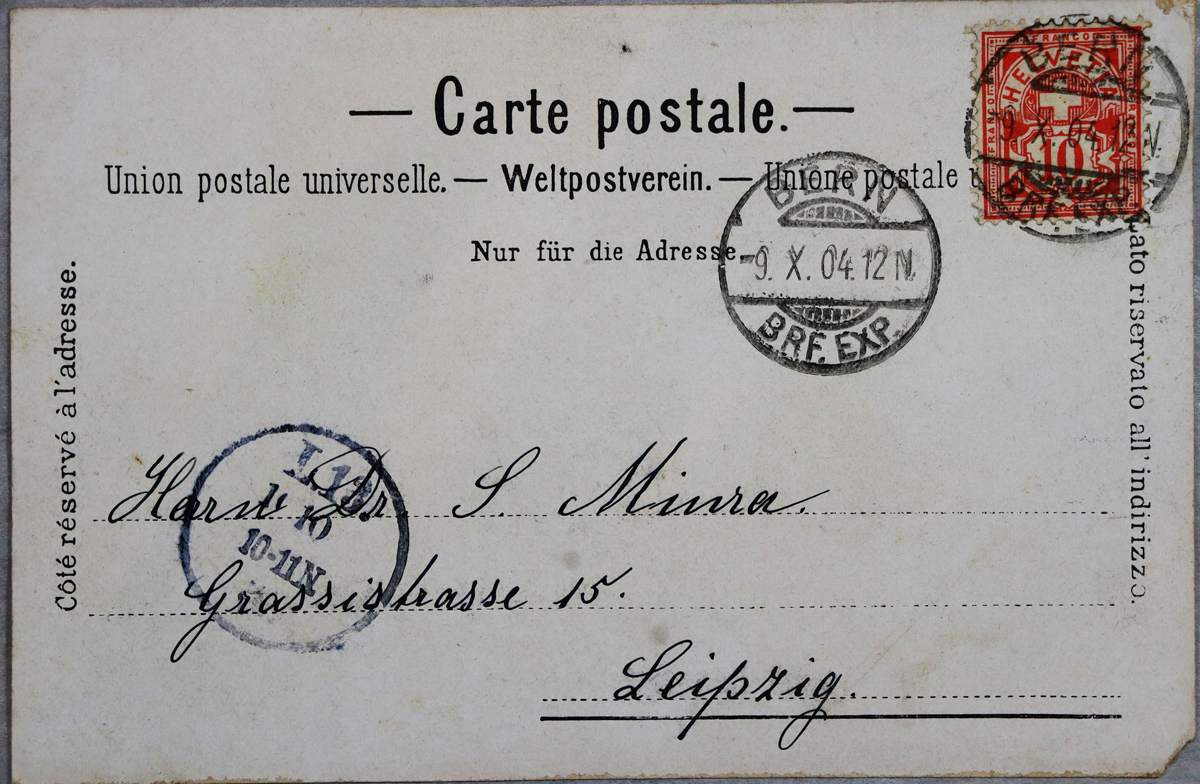 — Carte postale. —
Union postale universelle. — Weltpostverein. — Unione postale
Nur für die Adresse.
Côté réservé à l'adresse.
Lato riservato all'indirizzo.
FRANCO
HELVETIA
FRANCO
10
BERN
9. X. 04. 12 N.
BRF. EXP.
BERN
-9. X. 04. 12 N.
BRF. EXP.
10
10-11N
Herrn Dr. S. Miura.
Grassistrasse 15.
Leipzig.